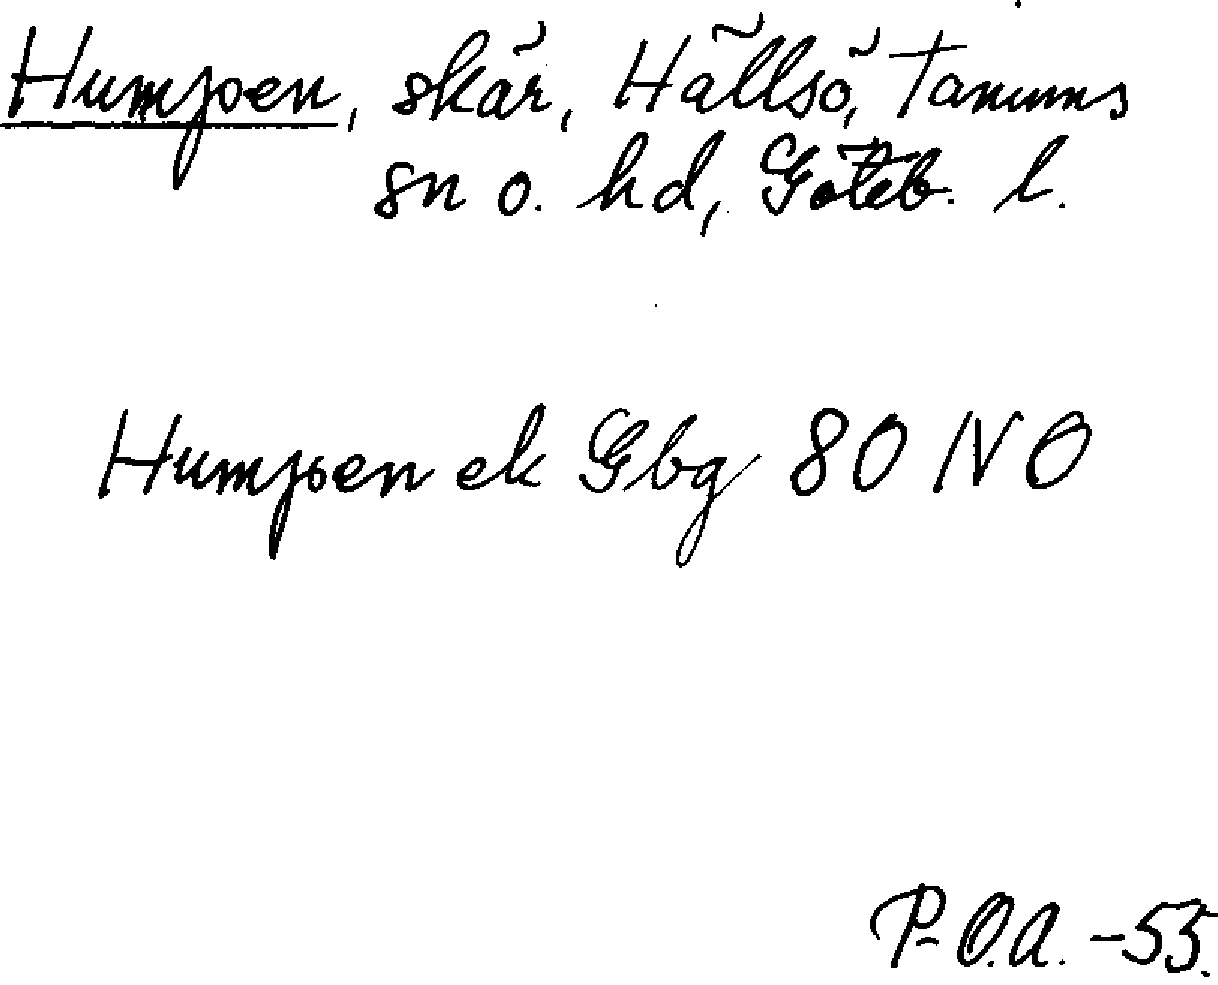 Humpen, skär, Hällsö, Tanums
sn o. hd, Göteb. l.
Humpen ek Gbg 80 NO
P-O.A. -55.